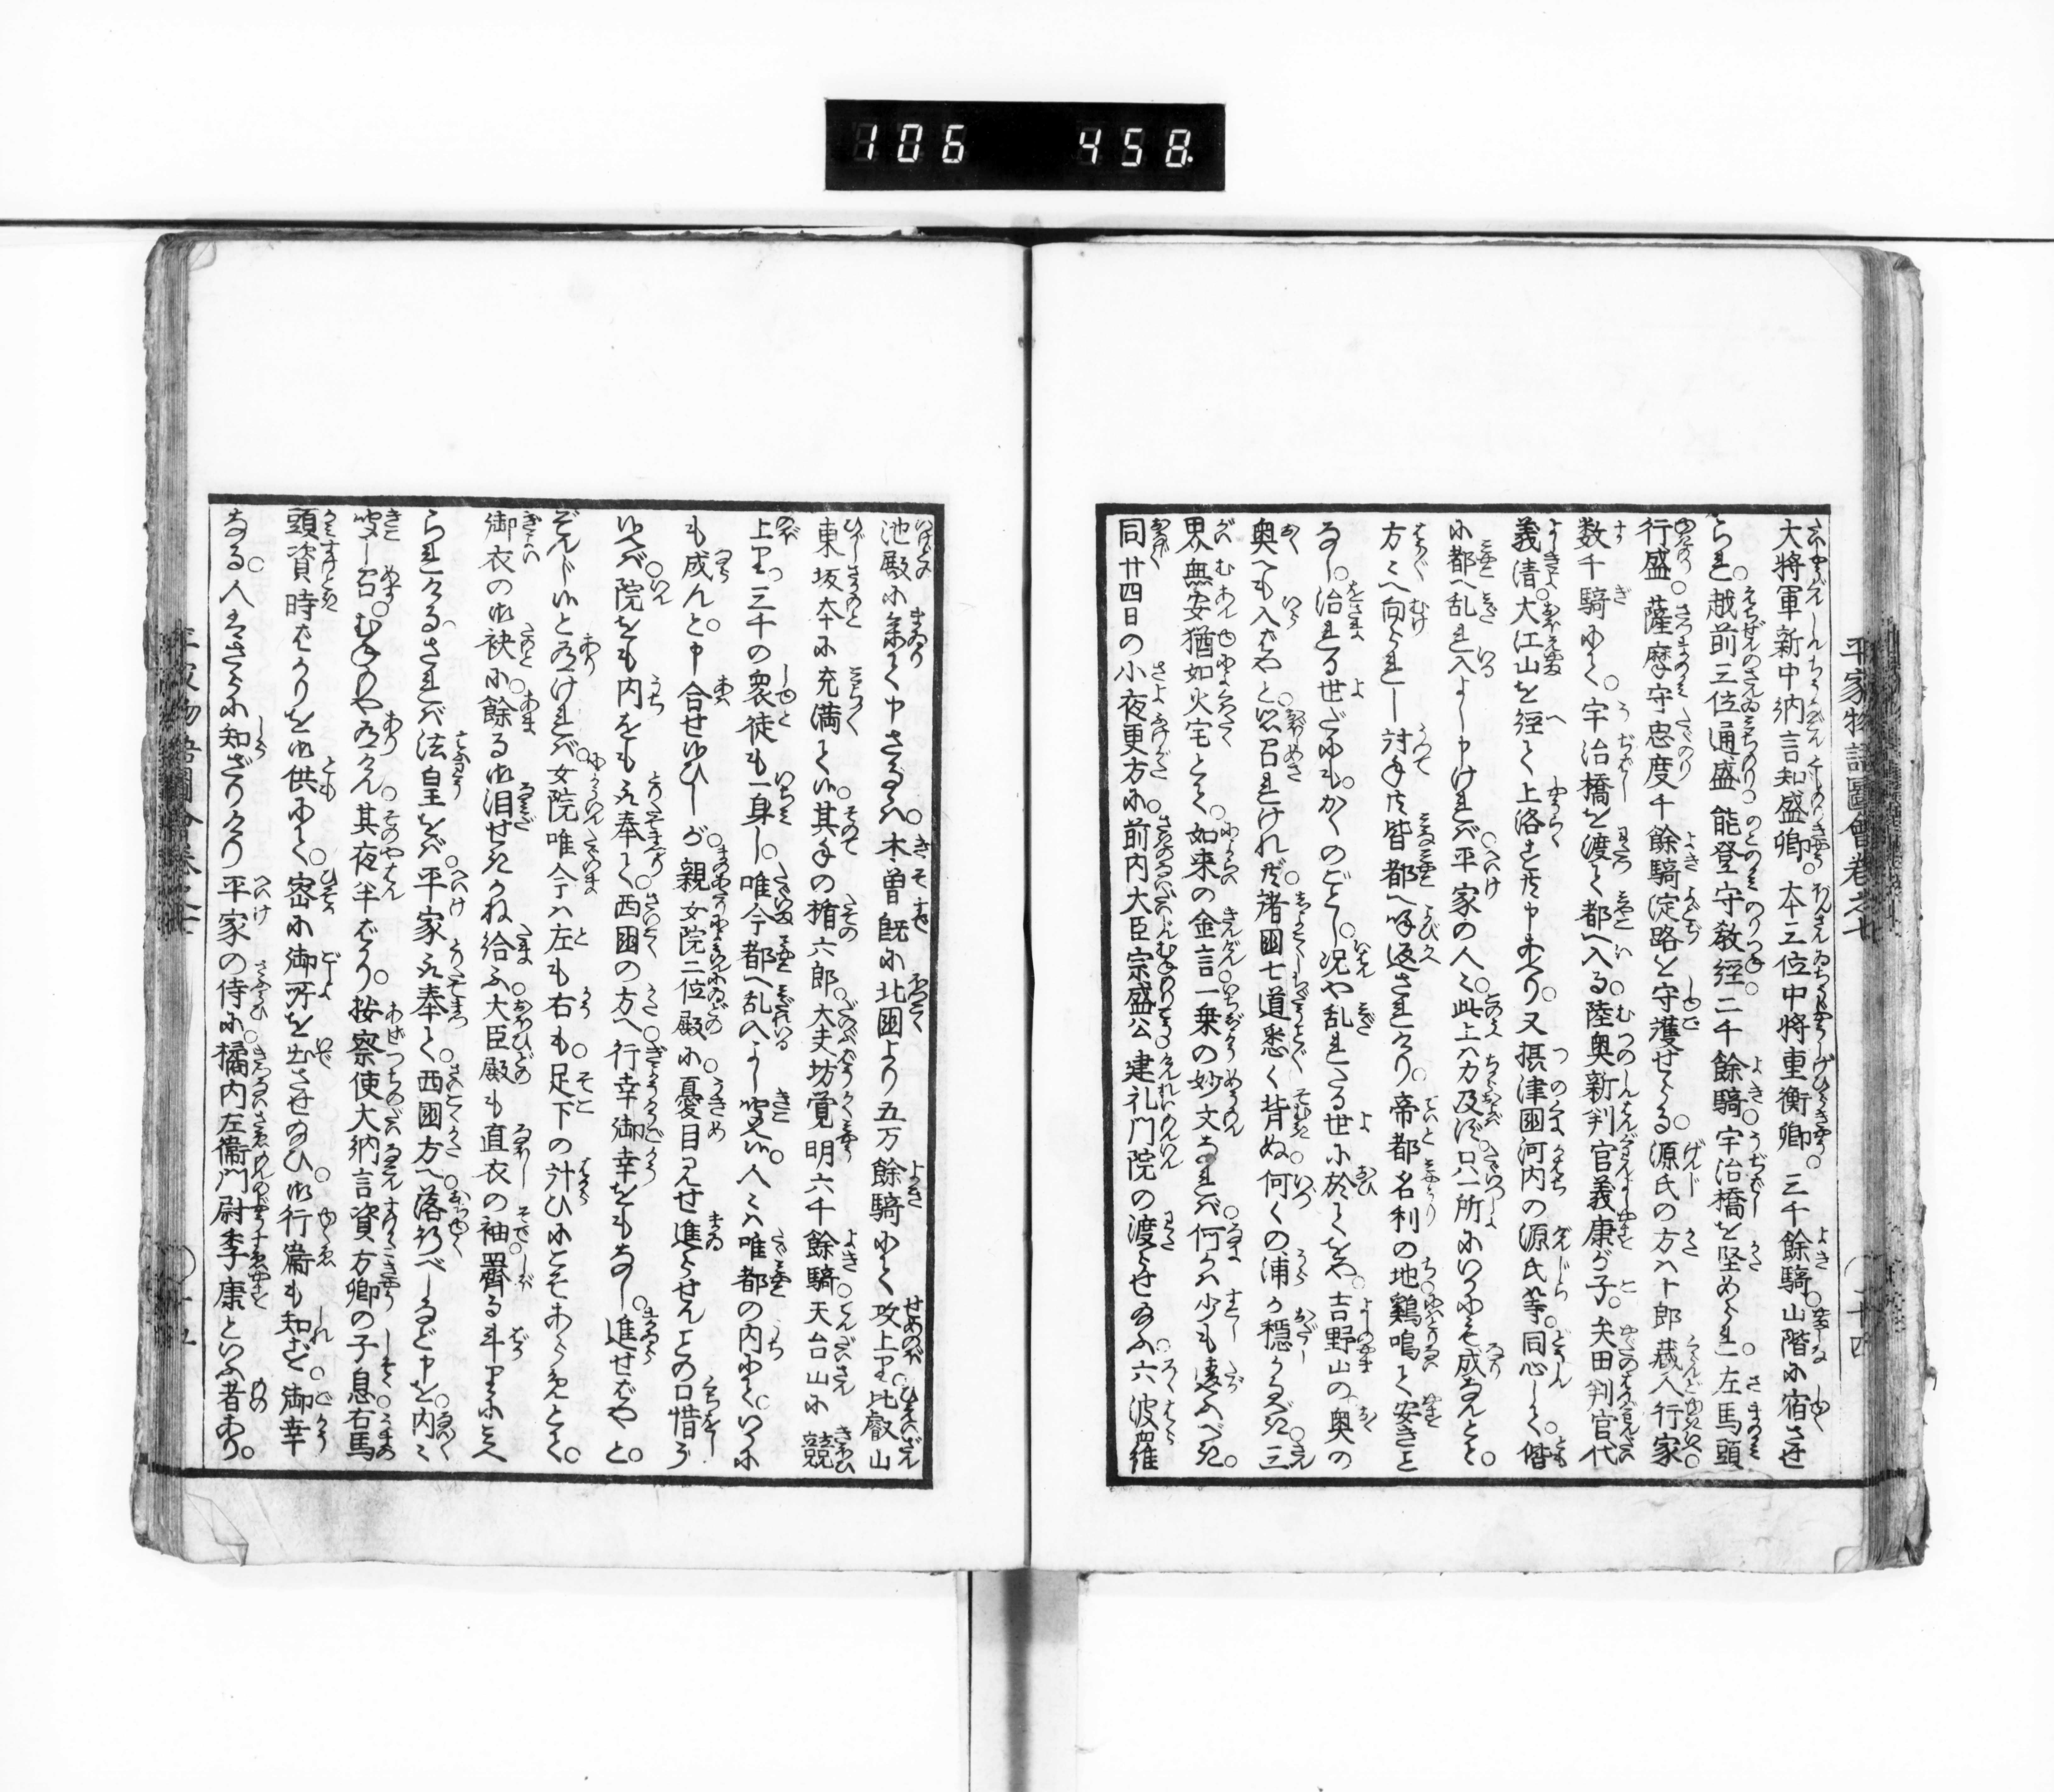 106 458
平家物語圖會巻之七
大将軍新中納言知盛卿。本三位中将重衡卿。三千餘騎。山階に宿させ
られ。越前三位通盛。能登守教經二千餘騎。宇治橋を堅めらる。左馬頭
行盛。薩摩守忠度千餘騎淀路を守護せらる。源氏の方ハ十郎蔵人行家
数千騎にて。宇治橋を渡て都へ入る。陸奥新判官義康が子。矢田判官代
義清。大江山を經て上洛すと申あへり。又摂津國河内の源氏等。同心して。偕
に都へ乱れ入よし申けれバ。平家の人〻。此上ハ力及バず。只一所にいかにも成なんとて。
方〻へ向られし討手共皆都へ呼返されけり。帝都名利の地鷄鳴て安きこと
なし。治れる世だにも。かくのごとし。况や乱れたる世に於てをや。吉野山の奥の
奥へも入ばやと。思召れけれ共。諸國七道悉く背ぬ。何くの浦か穏かるべき。三
界無安猶如火宅とて。如来の金言一乗の妙文なれバ。何かハ少も違ふべき。
同廿四日の小夜更方に。前内大臣宗盛公。建礼門院の渡らせ給ふ。六波羅
池殿に参て申さるゝハ。木曽既に北國より五万餘騎にて攻上り。比叡山
東坂本に充満て候。其手の楯六郎。大夫坊覚明六千餘騎。天台山に競
上り。三千の衆徒も一身し。唯今都へ乱入よし聞え候。人〻ハ唯都の内にて。いかに
も成んと。申合せ候ひしが。親女院二位殿に。憂目見せ進らせんことの口惜う
候へバ。院をも内をも取奉て。西國の方へ。行幸御幸をもなし。進せばやと。
ぞんじ候と有けれバ。女院唯今ハ左も右も。足下の計ひにこそあらめとて。
御衣の御袂に。餘る御泪せきかね給ふ。大臣殿も直衣の袖。霽る斗りに見え
られける。されバ法皇をバ。平家取奉て。西國方へ。落行べしなど申を。内〻
聞し召。むねのや有けん。其夜半ばかり。按察使大納言資方卿の子息。右馬
頭資時ばかりを御供にて。密に御所を出させ給ひ。御行衛も知ず。御幸
なる。人ハさらに知ざりけり。平家の侍に。橘内左衞門尉季康といふ者あり。
平家物語圖會巻之七